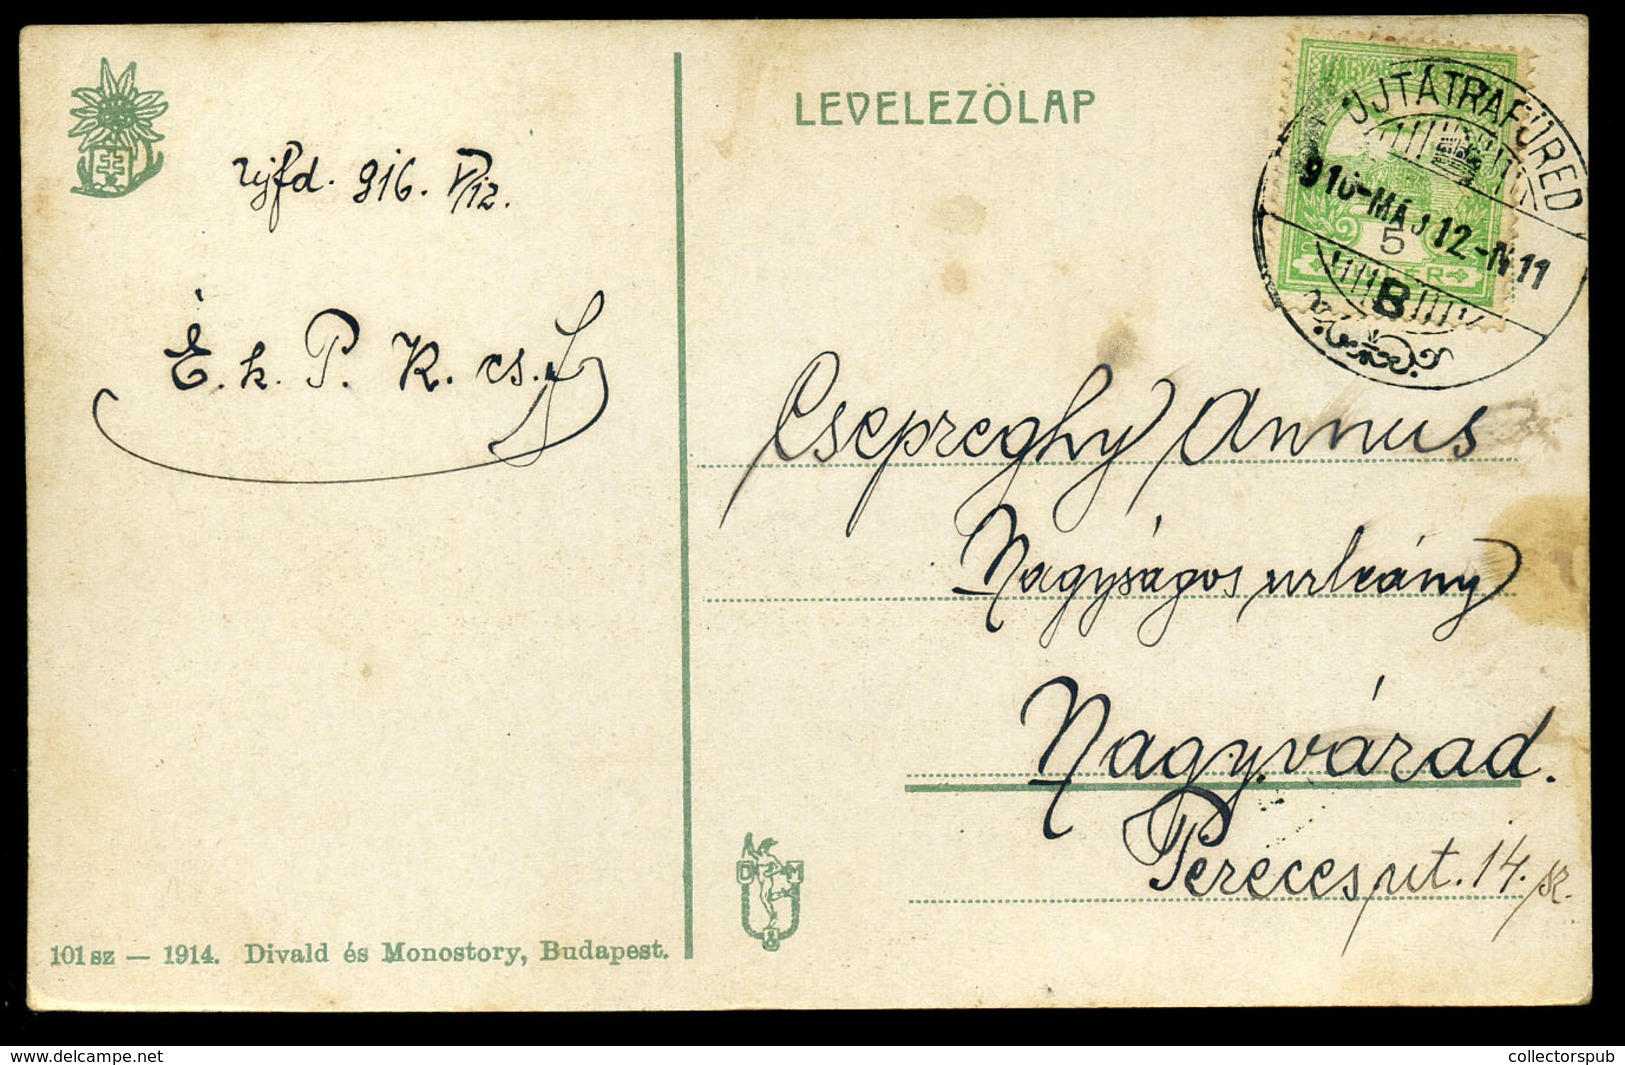 LEVELEZŐLAP
MAGYAR
5
FILLÉR
UJTÁTRAFÜRED
916-MÁJ 12-N11
B
Ujfd. 916. V/12.
É. k. P. K. cs.
Csepreghy Annus
Nagyságos urleány
Nagyvárad.
Pereces ut. 14. sz.
D M
101 sz — 1914. Divald és Monostory, Budapest.
www.delcampe.net
collectorspub